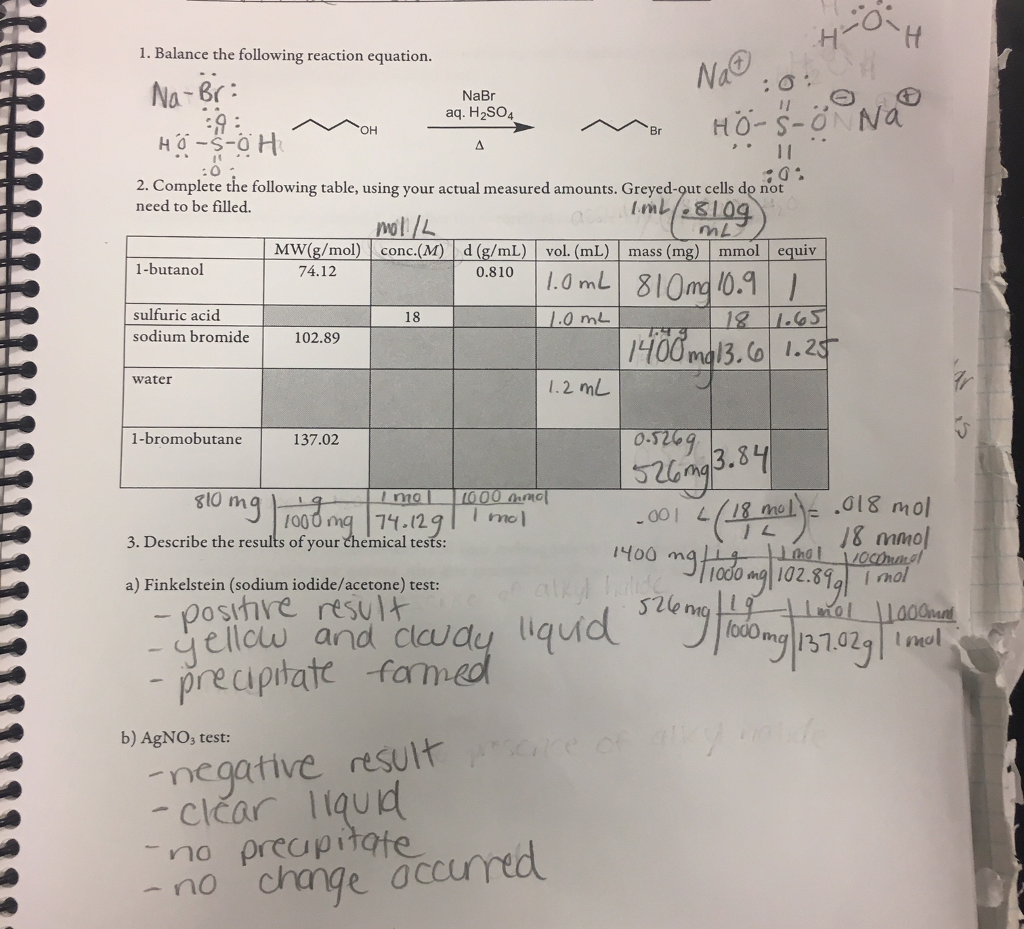 H-O-H
1. Balance the following reaction equation.
Na-Br:
:O:
HO-S-OH
:O:
OH
NaBr
aq. H₂SO₄
Δ
Br
Na⊕
:O:
HO-S-O⊖ Na⊕
:O:
2. Complete the following table, using your actual measured amounts. Greyed-out cells do not
need to be filled.
1mL (.810g/mL)
mol/L
MW(g/mol) conc.(M) d (g/mL) vol. (mL) mass (mg) mmol equiv
1-butanol 74.12 0.810 1.0 mL 810mg 10.9 1
sulfuric acid 18 1.0 mL 18 1.65
sodium bromide 102.89 1.4g 1400mg 13.6 1.25
water 1.2 mL
1-bromobutane 137.02 0.526g 526mg 3.84
810 mg | 1g | 1 mol | 1000 mmol
1000 mg | 74.12g | 1 mol
.001 L (18 mol / 1 L) = .018 mol
18 mmol
3. Describe the results of your chemical tests:
1400 mg | 1g | 1mol | 1000mmol
1000 mg | 102.89g | 1 mol
a) Finkelstein (sodium iodide/acetone) test:
526mg | 1g | 1mol | 1000mml
1000mg | 137.02g | 1 mol
- positive result
- yellow and cloudy liquid
- precipitate formed
b) AgNO₃ test:
-negative result
- clear liquid
-no precupitate
- no change occurred